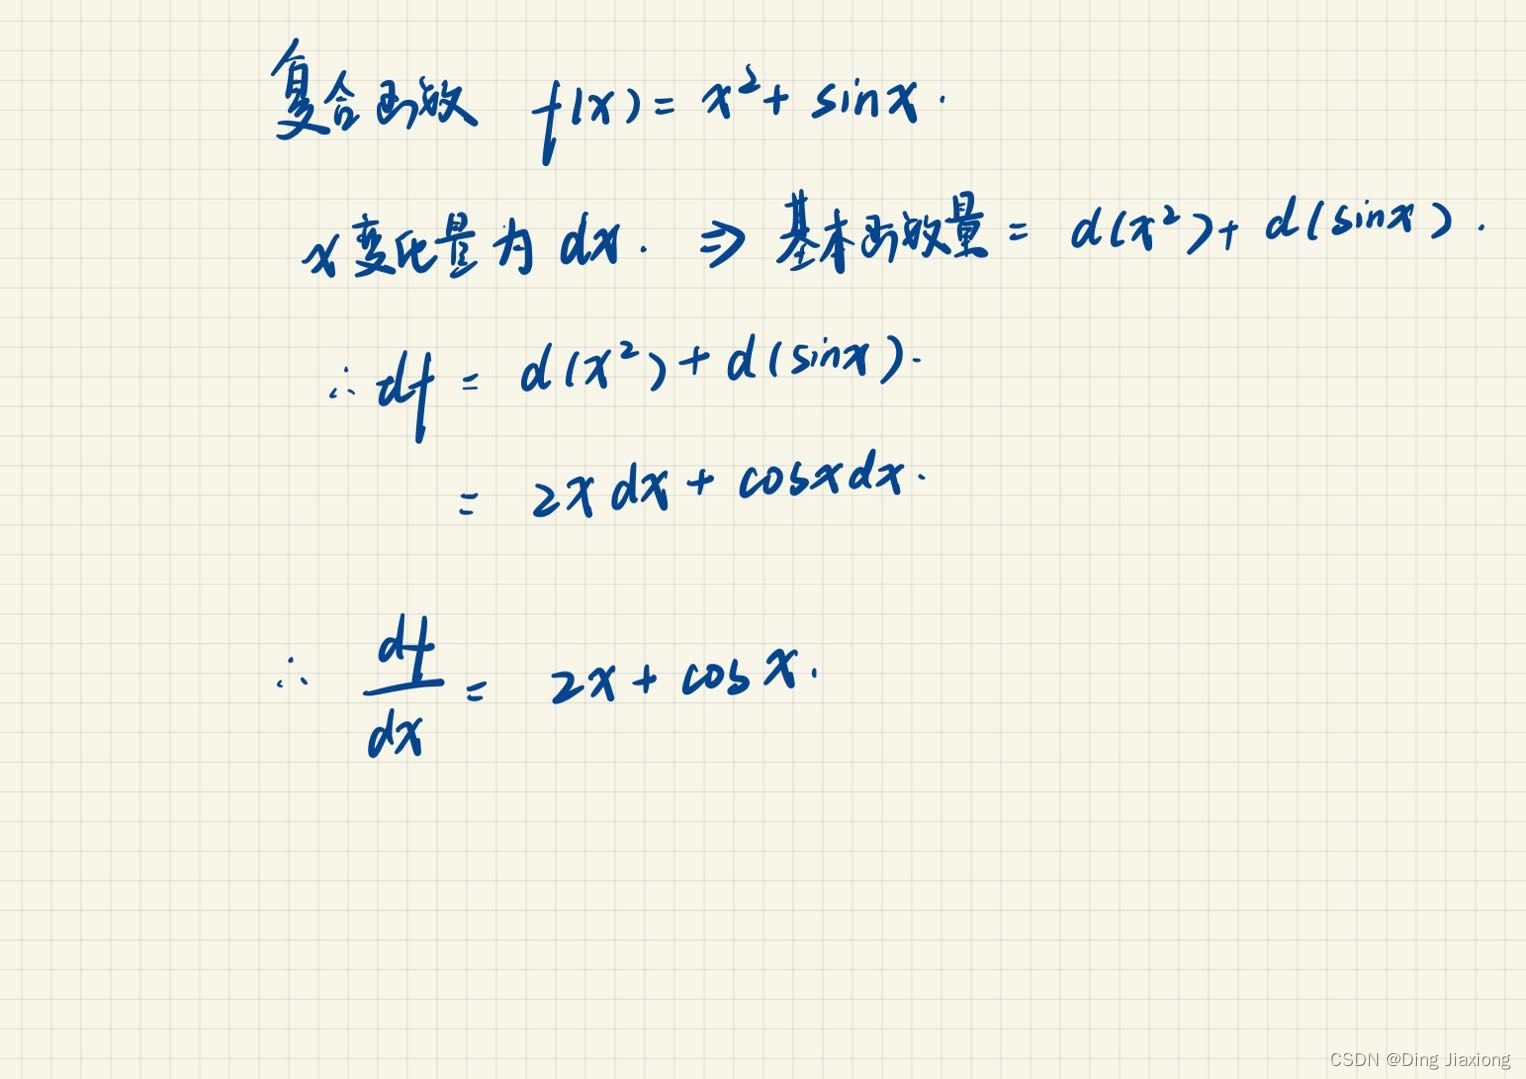 复合函数 f(x) = x² + sinx.
x变化量为 dx. ⇒ 基本函数量 = d(x²) + d(sinx).
∴ df = d(x²) + d(sinx).
= 2x dx + cosx dx.
∴ df/dx = 2x + cos x.
CSDN @Ding Jiaxiong